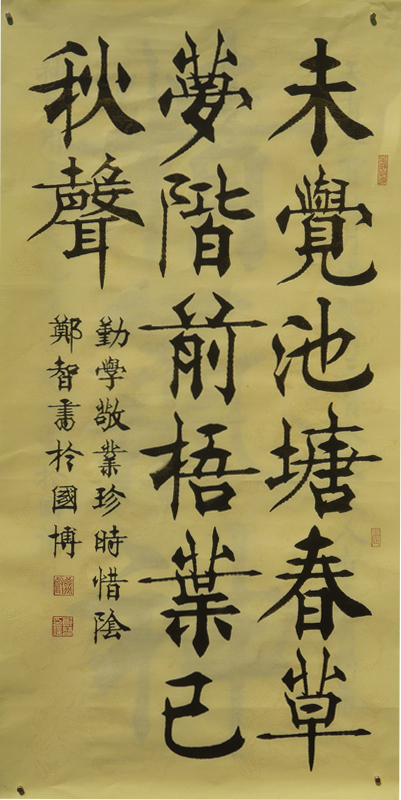 未覺池塘春草
夢階前梧葉已
秋聲
勤學敬業珍時惜陰
鄭智書於國博